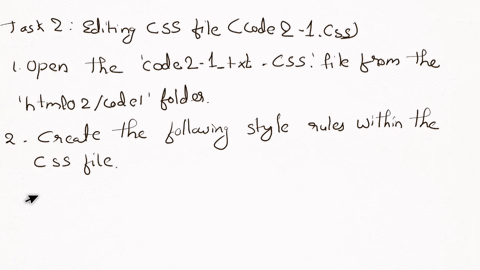 Task 2: Editing CSS file (code2-1.css)
1. Open the 'code2-1_txt.css' file from the
'html02/code1' folder.
2. Create the following style rules within the
CSS file.